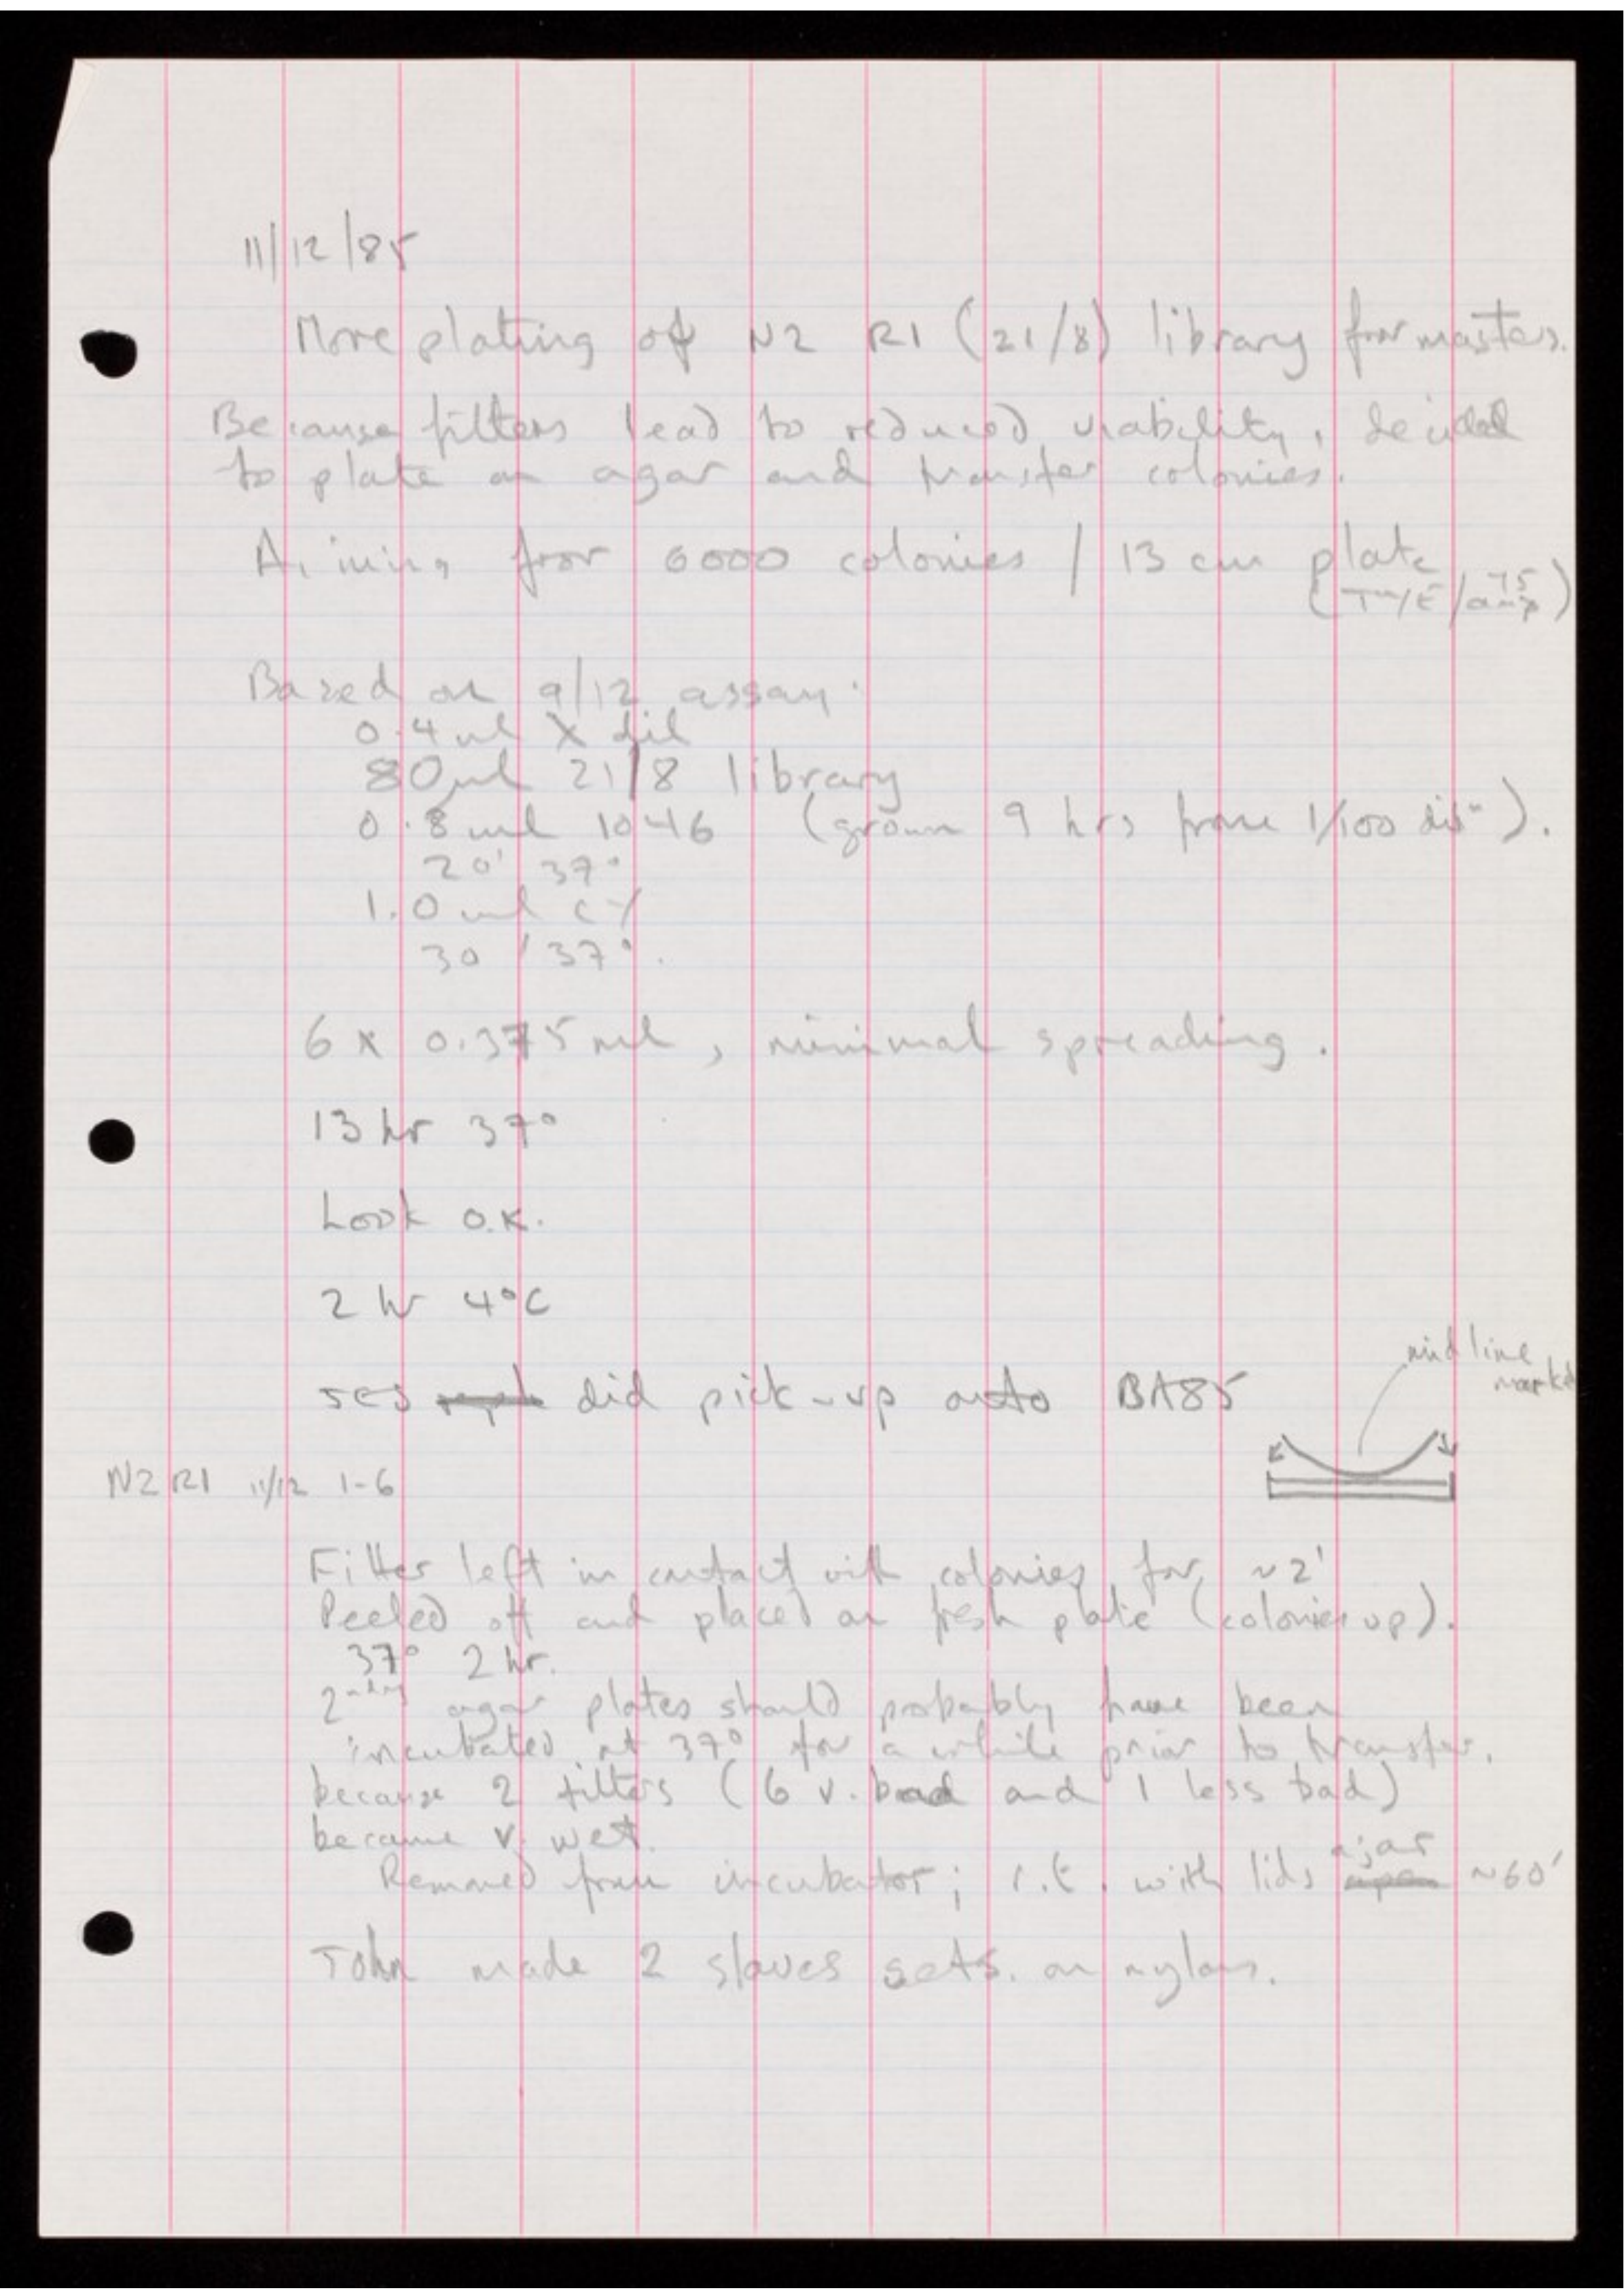 11/12/85
More plating of N2 R1 (21/8) library for masters.
Because filters lead to reduced viability, decided
to plate on agar and transfer colonies.
Aiming for 6000 colonies / 13 cm plate
(TYE/amp)
Based on 9/12 assay:
0.4 ml λ dil
80 μl 21/8 library
0.8 ml 1046 (grown 9 hrs from 1/100 dil").
20' 37°
1.0 ml CY
30' 37°.
6 x 0.375 ml, minimal spreading.
13 hr 37°
Look O.K.
2 hr 4°C
mid line
marked
JES did pick-up onto BA85
N2 R1 11/12 1-6
Filter left in contact with colonies for ~2'
Peeled off and placed on fresh plate (colonies up).
37° 2 hr.
2ndary agar plates should probably have been
incubated at 37° for a while prior to transfer,
because 2 filters (6 v. bad and 1 less bad)
became v. wet.
Removed from incubator; r.t. with lids ajar ~60'
John made 2 slaves sets. on nylon.